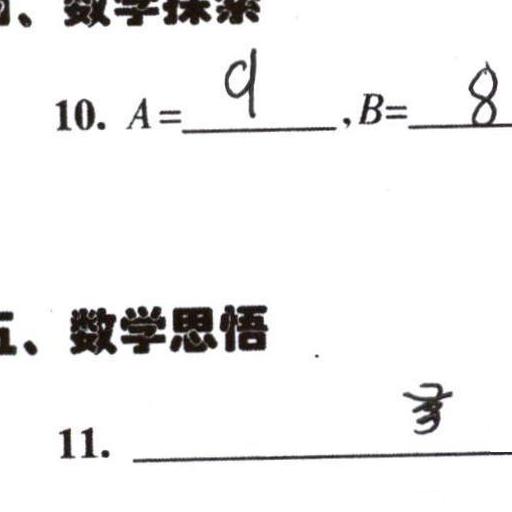 、数学探索
10. A=9,B=8
五、数学思悟
11.